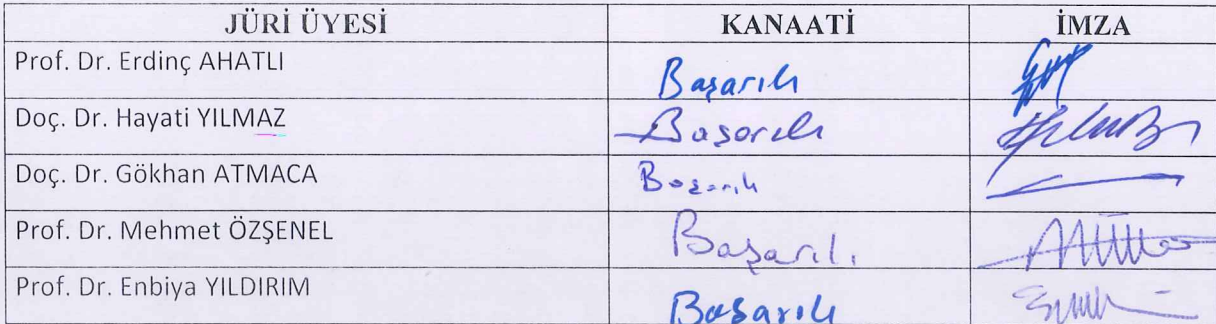 JÜRİ ÜYESİ KANAATİ İMZA
Prof. Dr. Erdinç AHATLI Başarılı
Doç. Dr. Hayati YILMAZ Başarılı
Doç. Dr. Gökhan ATMACA Başarılı
Prof. Dr. Mehmet ÖZŞENEL Başarılı
Prof. Dr. Enbiya YILDIRIM Başarılı